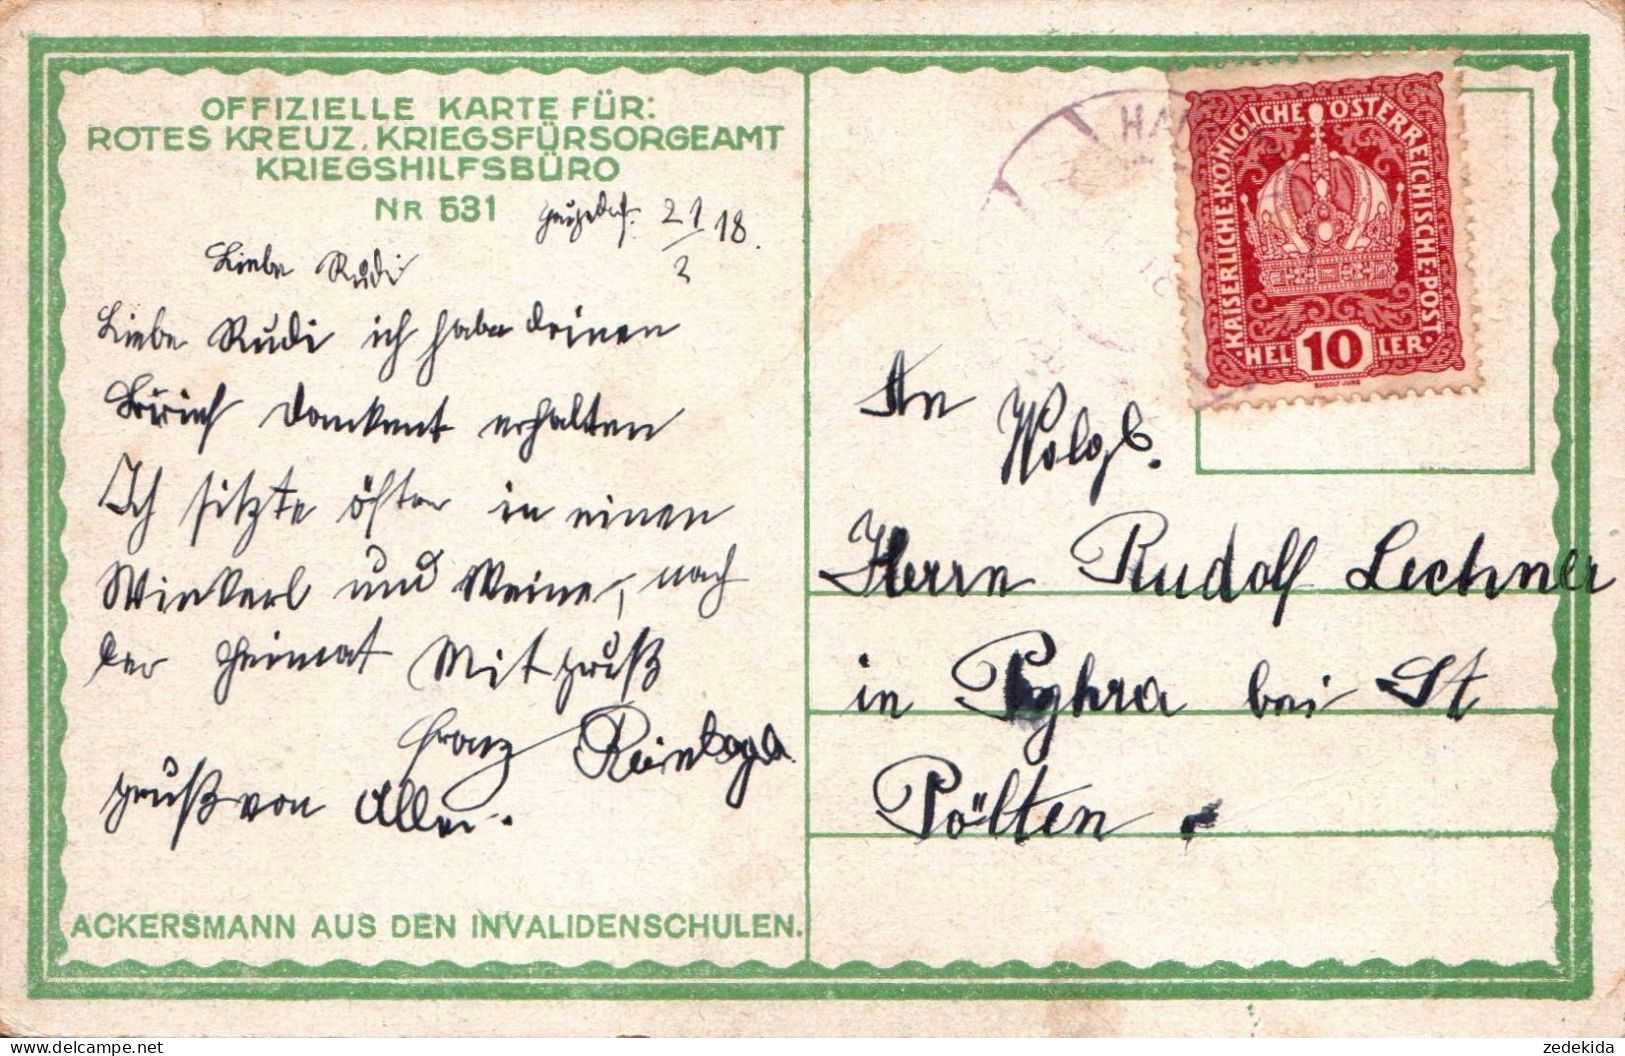 OFFIZIELLE KARTE FÜR:
ROTES KREUZ. KRIEGSFÜRSORGEAMT
KRIEGSHILFSBÜRO
NR 531
21/2 18.
Liebe Rudi
Liebe Rudi ich habe deinen
dankent erhalten
Ich sitzte öfter in einen
Winkerl und Weine, nach
der Heimat Mit Gruß
Franz
Gruß von Allen.
ACKERSMANN AUS DEN INVALIDENSCHULEN.
HA
KAISERLICHE·KÖNIGLICHE·ÖSTERREICHISCHE·POST
·HEL 10 LER·
RUDOLF JUNK
An
Wolgb.
Herrn Rudolf Lechner
in Pyhra bei St
Pölten
zedekida